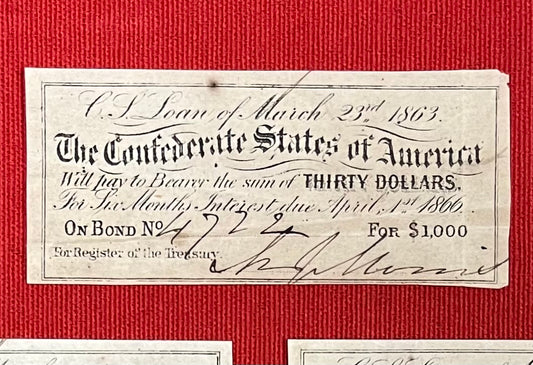 C. S. Loan of March 23rd 1863.
The Confederate States of America
Will pay to Bearer the sum of THIRTY DOLLARS,
For Six Months Interest due April, 1st 1866.
ON BOND No 4722 FOR $1,000
For Register of the Treasury.